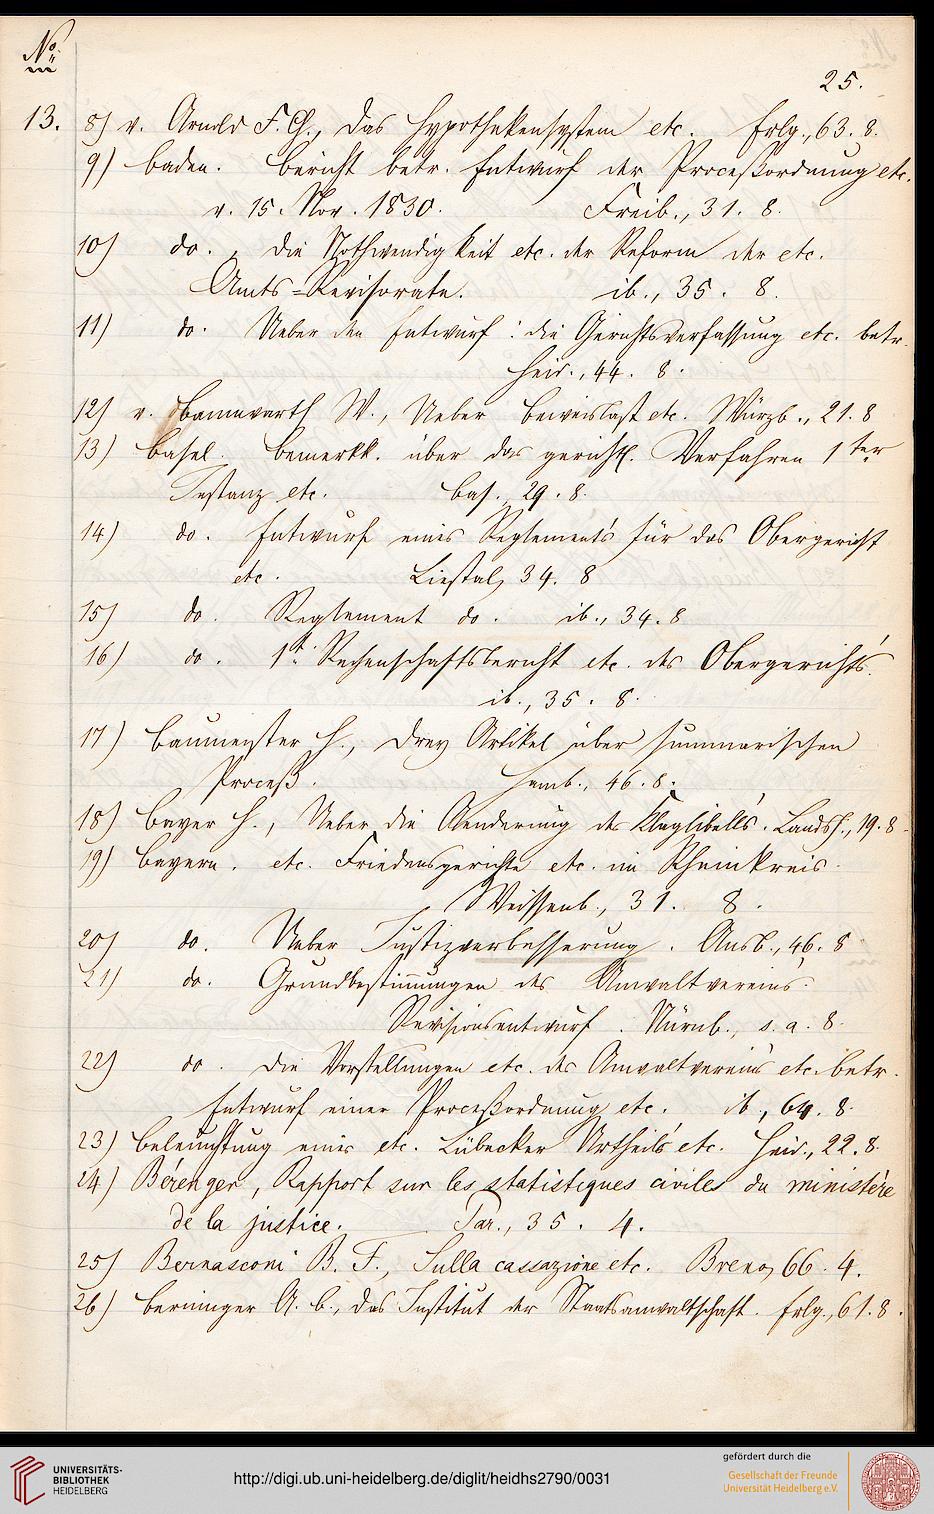 No.
25.
13. 8) v. Arnold F. Ch., Das Hypothekensystem etc. Erlg., 63. 8.
9) Baden. Bericht betr. Entwurf der Proceßordnung etc.
v. 15. Nov. 1830. Freib., 31. 8.
10) do. Die Nothwendigkeit etc. der Reform der etc.
Amts=Revisorate. ib., 35. 8.
11) do. Ueber den Entwurf: die Gerichtsverfassung etc. betr.
Heid., 44. 8.
12) v. Bannwarth W., Ueber Beweislast etc. Würzb., 21. 8
13) Basel. Bemerkk. über das gerichtl. Verfahren 1ter
Instanz etc. Bas., 29. 8.
14) do. Entwurf eines Reglements für das Obergericht
etc. Liestal, 34. 8
15) do. Reglement do. ib., 34. 8
16) do. 1r. Rechenschaftsbericht etc. des Obergerichts.
ib., 35. 8.
17) Baumeister H., Drey Artikel über summarischen
Proceß. Hamb., 46. 8.
18) Bayer H., Ueber die Aenderung des Klaglibells. Landsh., 19. 8.
19) Bayern. etc. Friedensgerichte etc. im Rheinkreis.
Weissenb., 31. 8.
20) do. Ueber Justizverbesserung. Ansb., 46. 8
21) do. Grundbestim̄ungen des Anwaltvereins.
Revisionsentwurf. Nürnb., s. a. 8.
22) do. Die Vorstellungen etc. des Anwaltvereins etc. betr.
Entwurf einer Proceßordnung etc. ib., 64. 8.
23) Beleuchtung eines etc. Lübecker Urtheils etc. Heid., 22. 8.
24) Bérenger, Rapport sur les statistiques civiles du ministère
de la justice. Par., 35. 4.
25) Bernasconi B. F., Sulla cassazione etc. Breno, 66. 4.
26) Berninger A. E., Das Institut der Staatsanwaltschaft. Erlg., 61. 8.
UNIVERSITÄTS-
BIBLIOTHEK
HEIDELBERG
http://digi.ub.uni-heidelberg.de/diglit/heidhs2790/0031
gefördert durch die
Gesellschaft der Freunde
Universität Heidelberg e.V.